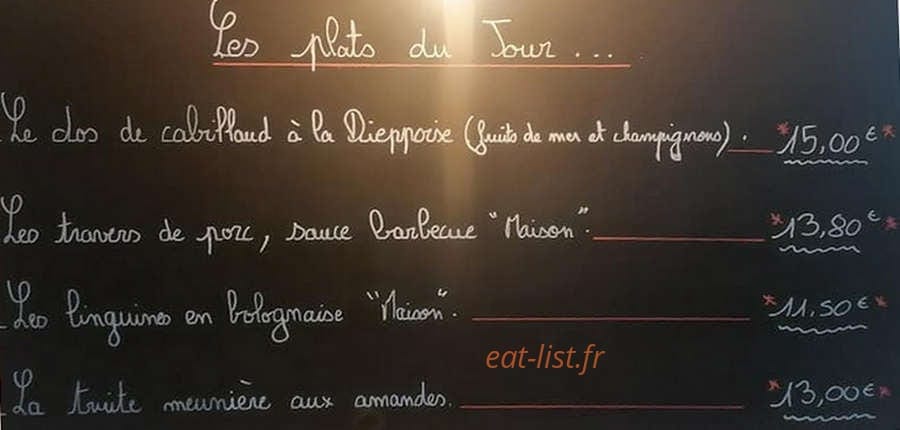 Les plats du Jour...
Le dos de cabillaud à la Dieppoise (fruits de mer et champignons). *15,00€*
Les travers de porc, sauce barbecue "Maison". *13,80€*
Les linguines en bolognaise "Maison". *11,50€*
eat-list.fr
La truite meunière aux amandes. *13,00€*